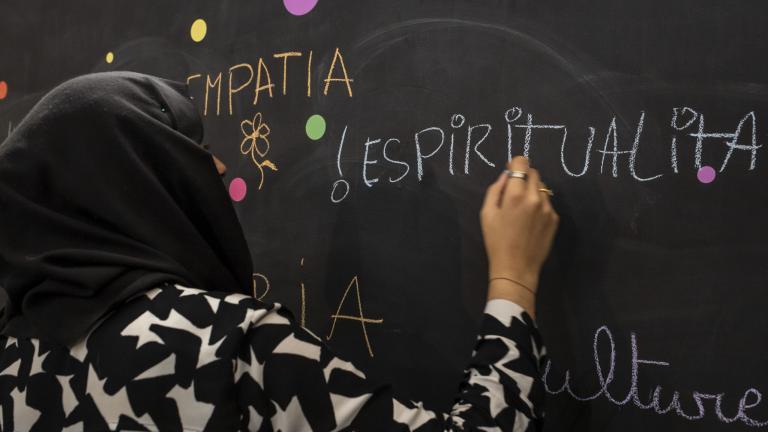 EMPATIA
!ESPIRITUALITA
culture